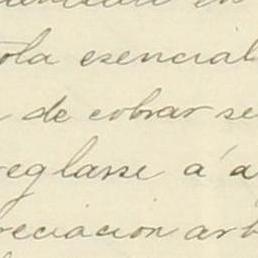 en
ola esencial
de cobrar se
reglarse á a
reciacion arb